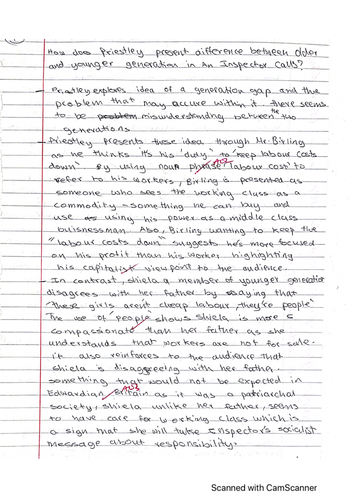 How does Priestley present difference between older
and younger generation in An Inspector Calls?
Priestley explores idea of a generation gap and the
problem that may accure within it. there seems
to be problem misunderstanding between the two
generations
Priestley presents these idea through Mr. Birling
as he thinks it's his duty to "keep labour costs
down". By using noun phrase 'labour cost' to
refer to his workers, Birling is presented as
someone who sees the working class as a
commodity - something he can buy and
use as using his power as a middle class
buisnessman. Also, Birling wanting to keep the
"labour costs down" suggests he's more focused
on his profit than his worker, highlighting
his capitalist viewpoint to the audience.
In contrast, shiela a member of younger generation
disagrees with her father by saying that
"these girls aren't cheap labour, they're people"
The use of 'people' shows Shiela is more
compassionate than her father as she
understands that workers are not for sale.
it also reinforces to the audience that
shiela is disagreeing with her father -
something that would not be expected in
Edwardian Britain as it was a patriarchal
society, shiela unlike her father, seems
to have care for working class which is
a sign that she will take inspector's socialist
message about responsibility.
Scanned with CamScanner